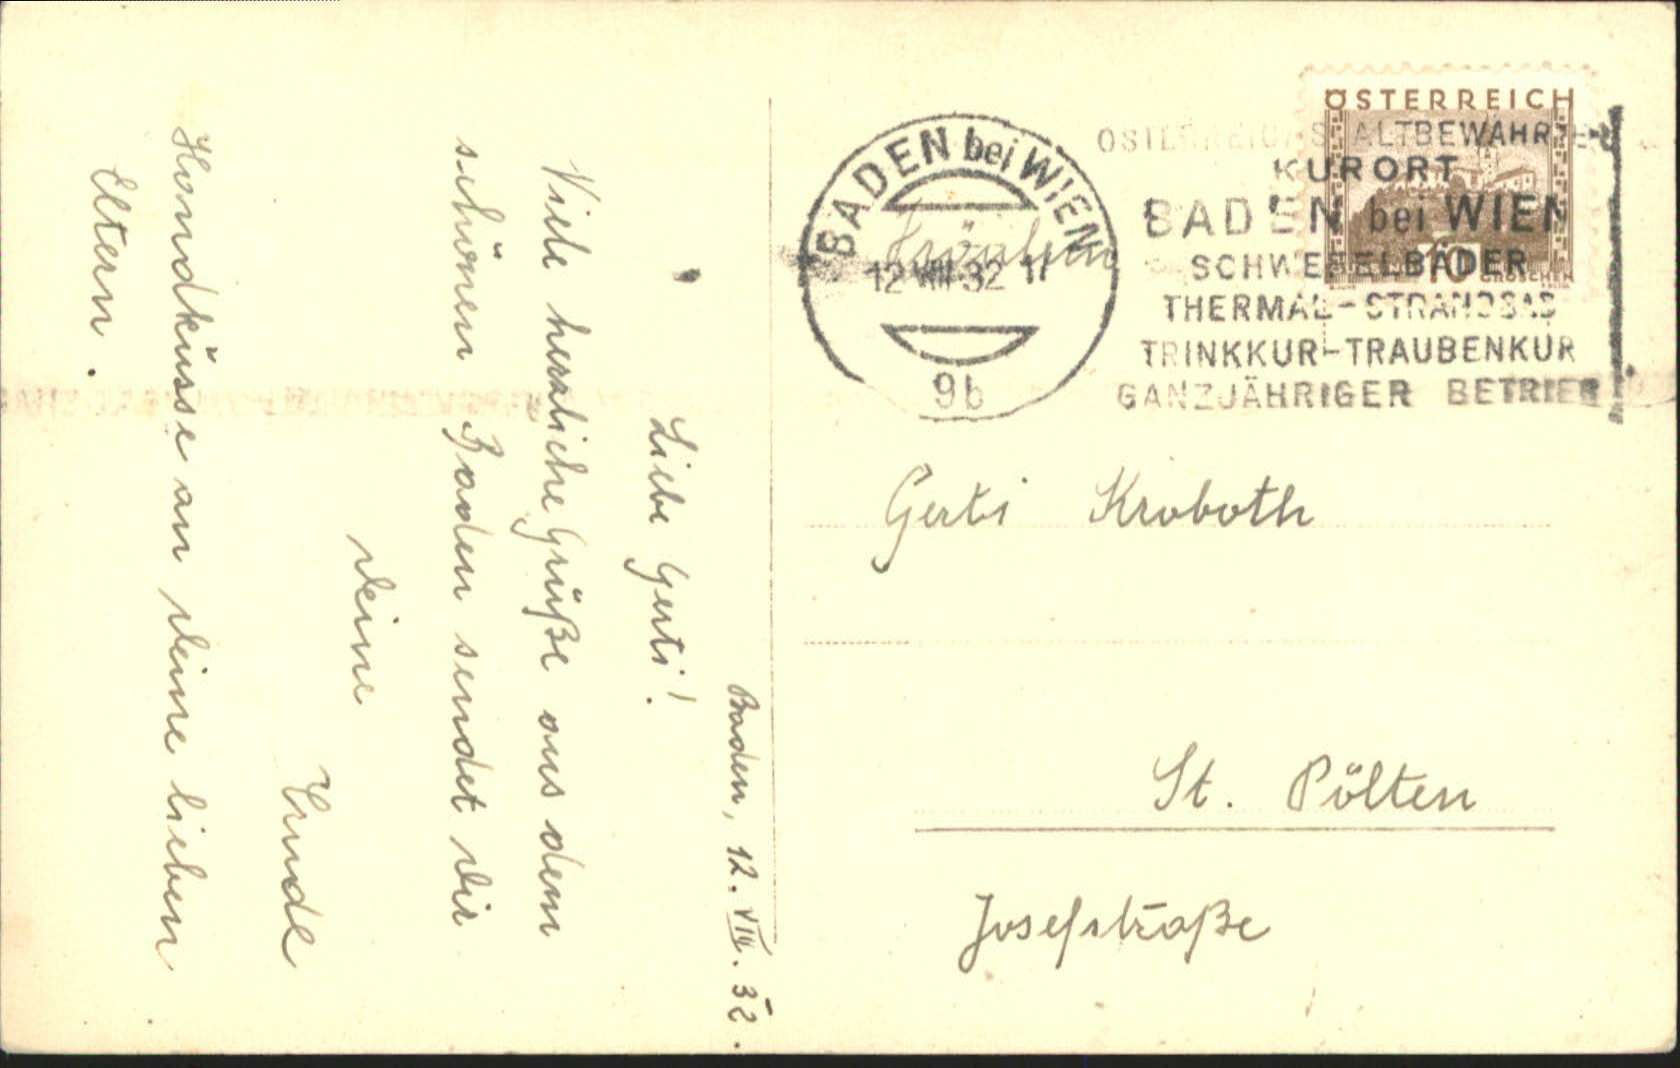 Baden, 12. VIII. 32
Liebe Gerti!
Viele herzliche Grüße aus dem
schönen Baden sendet dir
deine
Trude
Handküsse an deine lieben
Eltern.
BADEN bei WIEN
12 VIII 32 11
9b
ÖSTERREICHS ALTBEWÄHRTER
KURORT
BADEN bei WIEN
SCHWEFELBÄDER
THERMAL-STRANDBAD
TRINKKUR-TRAUBENKUR
GANZJÄHRIGER BETRIEB
ÖSTERREICH
10 GROSCHEN
Fräulein
Gerti Kroboth
St. Pölten
Josefstraße